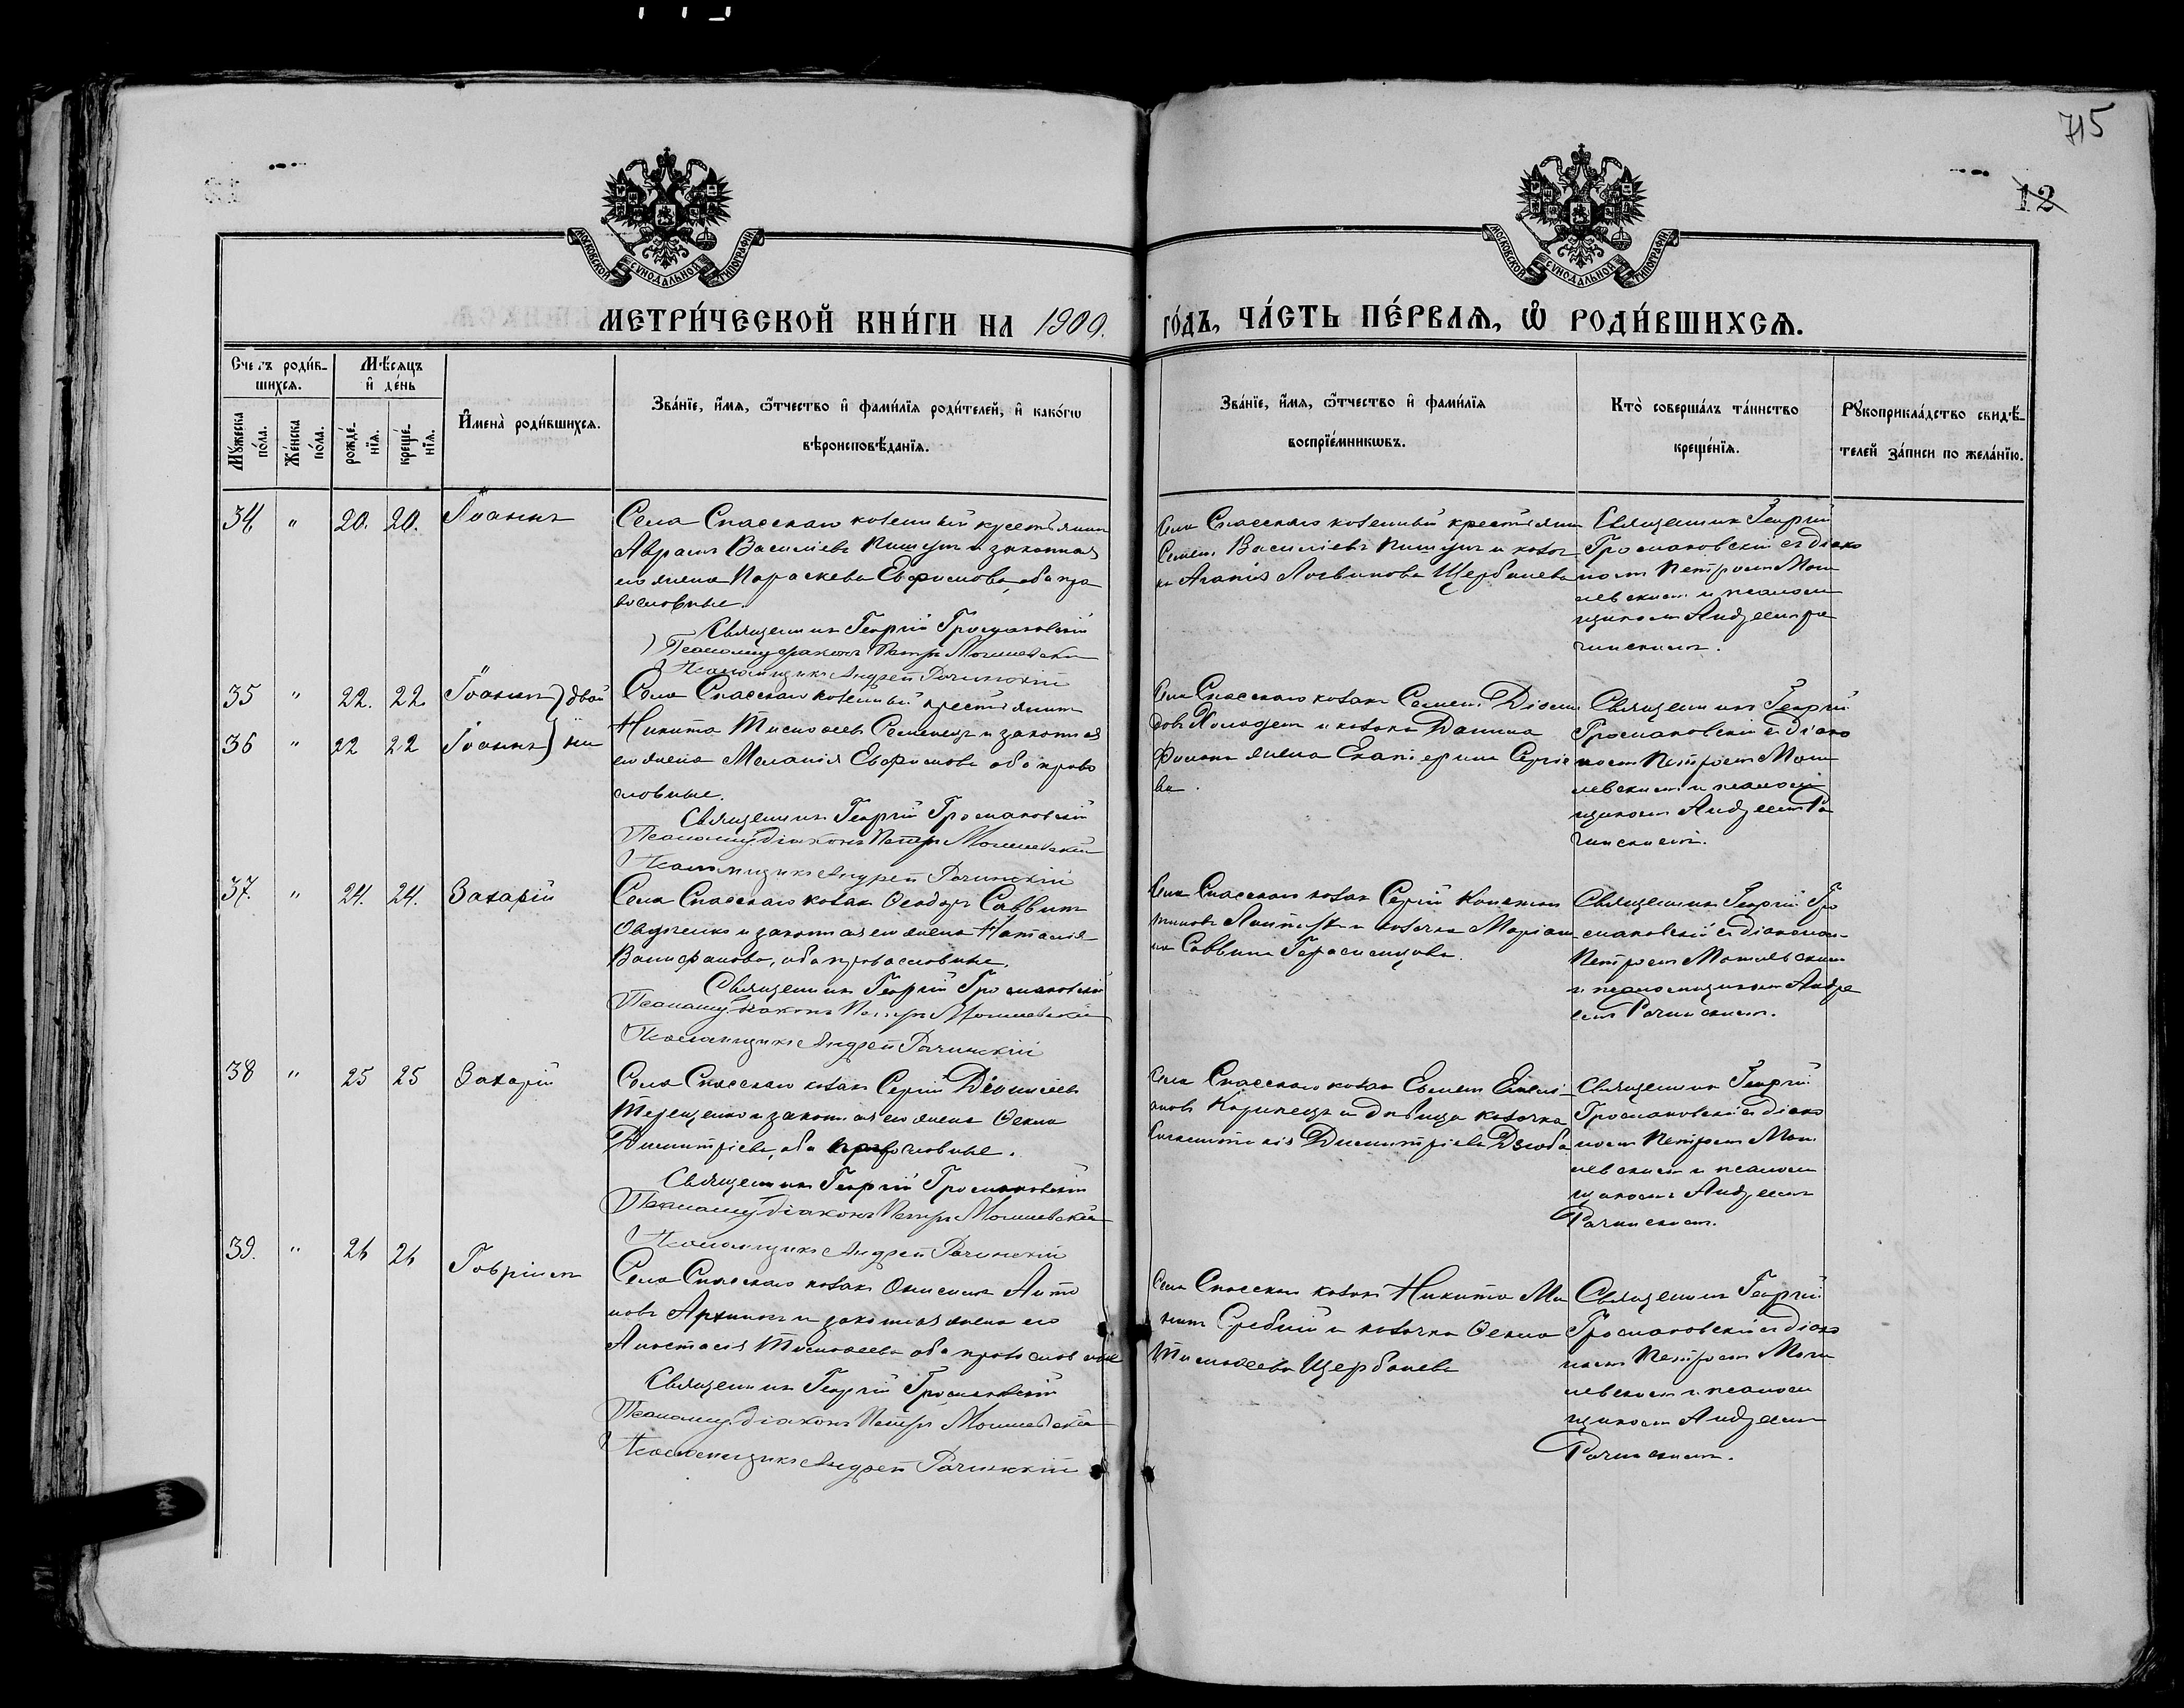 715
12
МОСКОВСКОЙ СѴНОДАЛЬНОЙ ТИПОГРАФІИ
МОСКОВСКОЙ СѴНОДАЛЬНОЙ ТИПОГРАФІИ
МЕТРИ́ЧЕСКОЙ КНИ́ГИ НА 1909. ГО́ДЪ, ЧА́СТЬ ПЕ́РВАЯ, Ѡ РОДИ́ВШИХСЯ.
Счетъ роди́в-
шихся.
Мѣсяцъ
и де́нь
Мꙋ́жеска
по́ла.
Же́нска
по́ла.
рожде́-
нїя.
креще́-
нїя.
Имена̀ роди́вшихся.
Зва́нїе, и́мя, ѻ҆́тчество и фами́лїя роди́телей, и како́гѡ
вѣроисповѣ́данїя.
Зва́нїе, и́мя, ѻ҆́тчество и фами́лїя
воспрїе́мникѡвъ.
Кто̀ соверша́лъ та́инство
креще́нїя.
Рꙋкоприкла́дство свидѣ́-
телей за́писи по жела́нїю.
34 " 20. 20. Іоаннъ
Села Спасскаго козенный крестьянинъ
Аврамъ Василіевъ Пищунъ и законная
его жена Параскева Евфимова, оба пра
вославные.
Священникъ Георгій Громаковскій
Псаломщ. діаконъ Петръ
Псаломщикъ Андрей Рачинскій
Села Спасскаго козенный крестьянинъ
Семен. Василіевъ Пищунъ и козач
ка Агапія Логвинова Щербанева
Священникъ Георгій
Громаковскій съ діако
номъ Петромъ Мог
левскимъ и псалом
щикомъ Андреемъ Ра
чинскимъ.
35 " 22. 22. Іоаннъ } двой
36 " 22 22 Іоаннъ } ни
Села Спасскаго козенный крестьянинъ
Никита Тимоѳеевъ и законная
его жена Меланія Евфимова оба право
славные.
Священникъ Георгій Громаковскій
Псаломщ. діаконъ Петръ
Псаломщикъ Андрей Рачинскій
Села Спасскаго козакъ Семенъ Діоми
довъ и козака Даниила
жена Екатерина Сергіе
ва.
Священникъ Георгій
Громаковскій съ діако
номъ Петромъ Мог
левскимъ и псалом
щикомъ Андреемъ Ра
чинскимъ.
37. " 24. 24. Захарій
Села Спасскаго козакъ Ѳеодоръ Саввинъ
и законная его жена Наталія
оба православные.
Священникъ Георгій Громаковскій
Псаломщ. діаконъ Петръ
Псаломщикъ Андрей Рачинскій
Села Спасскаго козакъ Сергій Констан
тиновъ и козачка Маріам
на Саввина Герасимцова.
Священникъ Георгій Гро
маковскій съ діакономъ
Петромъ
и псаломщикомъ Андре
емъ Рачинскимъ.
38 " 25 25 Захарій
Села Спасскаго козакъ Сергій Діонисіевъ
Терещенко и законная его жена Ѳекла
Димитріева, оба православные.
Священникъ Георгій Громаковскій
Псаломщ. діаконъ Петръ
Псаломщикъ Андрей Рачинскій
Села Спасскаго козакъ Емел
ановъ и дѣвица козачка
Димитріева Дзюба
Священникъ Георгій
Громаковскій съ діако
номъ Петромъ Мог
левскимъ и псалом
щикомъ Андреемъ
Рачинскимъ.
39. " 26 26 Гавріилъ
Села Спасскаго козакъ Онисимъ Анто
новъ и законная жена его
Анастасія Тимоѳеева оба православные
Священникъ Георгій Громаковскій
Псаломщ. діаконъ Петръ
Псаломщикъ Андрей Рачинскій
Села Спасскаго козакъ Никита Ми
Сребный и козачка Ѳекла
Тимоѳеева Щербанева
Священникъ Георгій
Громаковскій съ діако
номъ Петромъ Моги
левскимъ и псалом
щикомъ Андреемъ
Рачинскимъ.